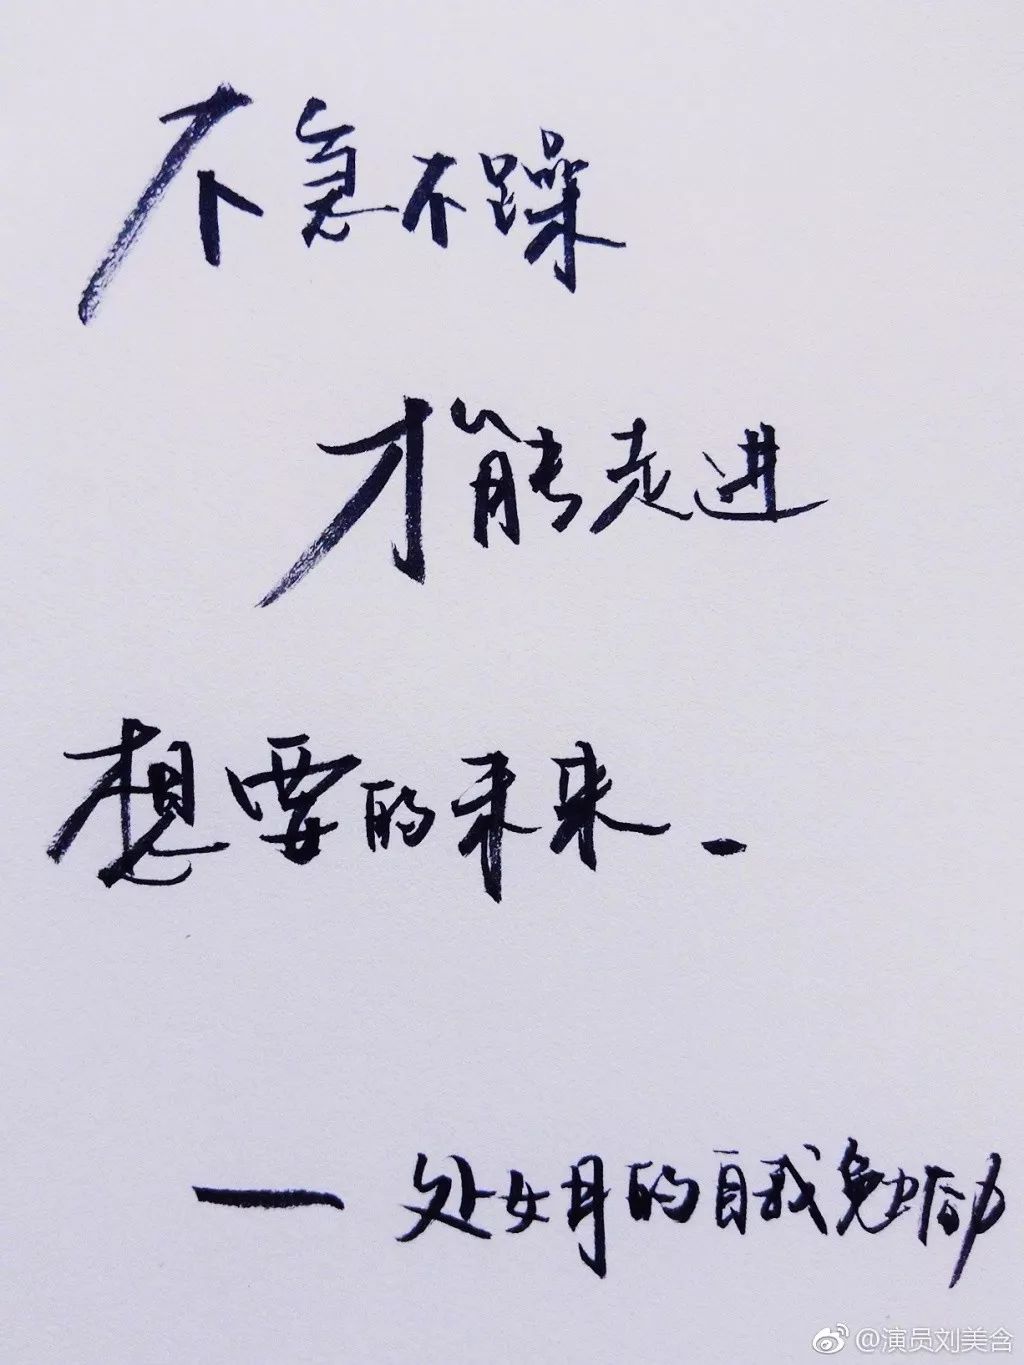 不急不躁
才能走进
想要的未来.
— 处女月的自我勉励
@演员刘美含